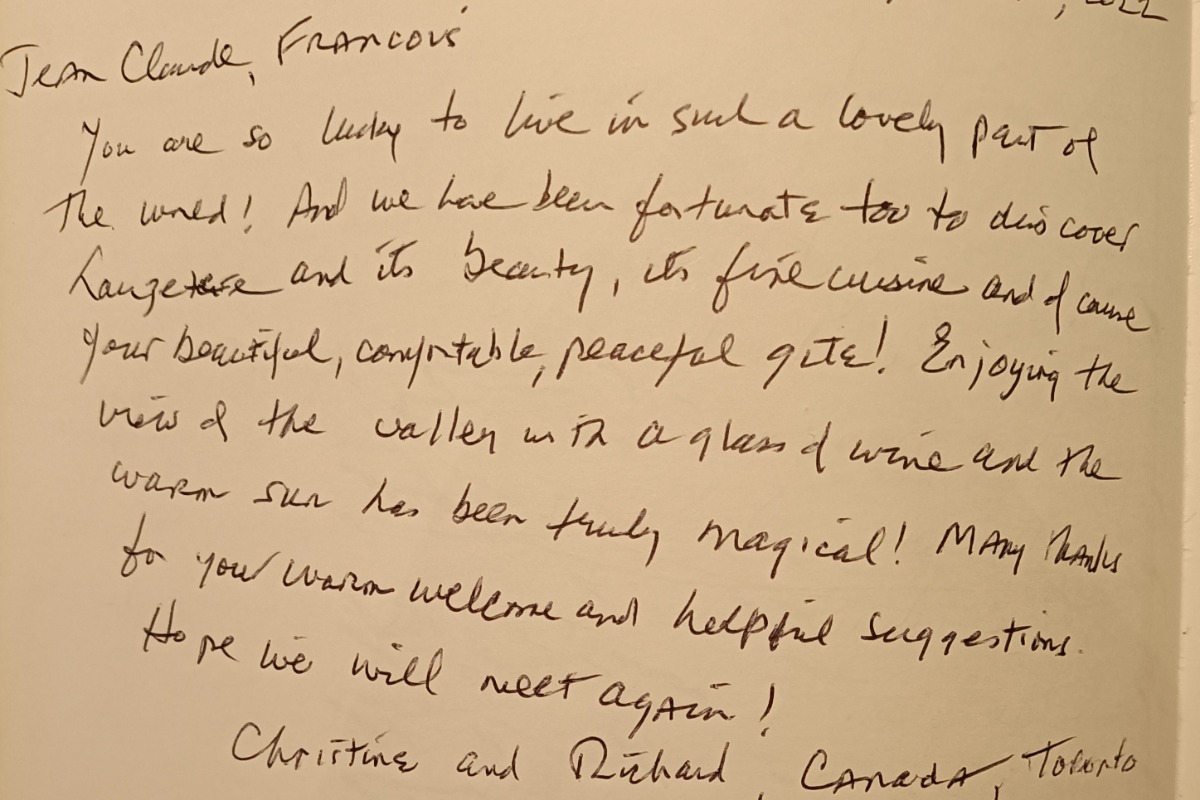 , 2022
Jean Claude, Francois
You are so lucky to live in such a lovely part of
the world! And we have been fortunate too to discover
and its beauty, its fine cuisine and of course
your beautiful, comfortable, peaceful gite! Enjoying the
view of the valley with a glass of wine and the
warm sun has been truly magical! Many thanks
for your warm welcome and helpful suggestions.
Hope we will meet again!
Christine and Richard, Canada, Toronto